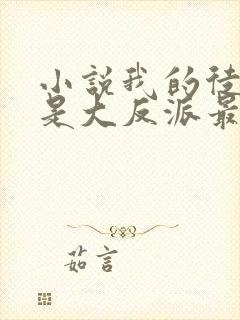 小説我的徒
是大反派最
茹言